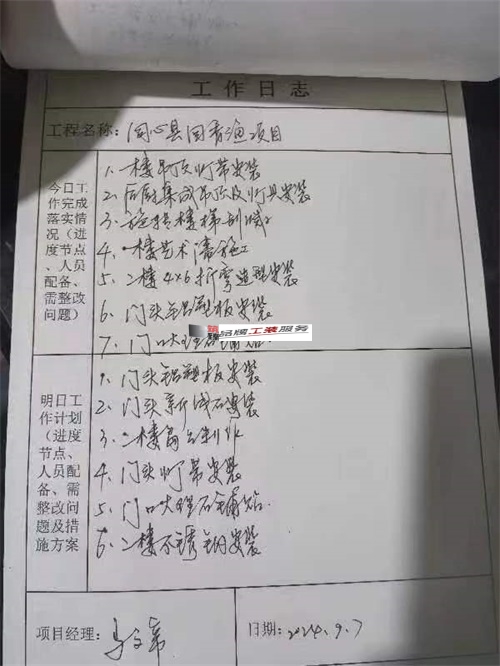 工作日志
工程名称：同心县回香渔项目
今日工作完成落实情况（进度节点、人员配备、需整改问题）
1、一楼吊顶灯带安装
2、后厨集成吊顶及灯具安装
3、旋转楼梯
4、一楼艺术漆施工
5、二楼4×6折弯造型安装
6、门头铝塑板安装
7、门口大理石铺贴
品牌工装服务
明日工作计划（进度节点、人员配备、需整改问题及措施方案
1、门头铝塑板安装
2、门头安装
3、二楼
4、门头灯带安装
5、门口大理石铺贴
6、二楼不锈钢安装
项目经理：
日期：2024.9.7